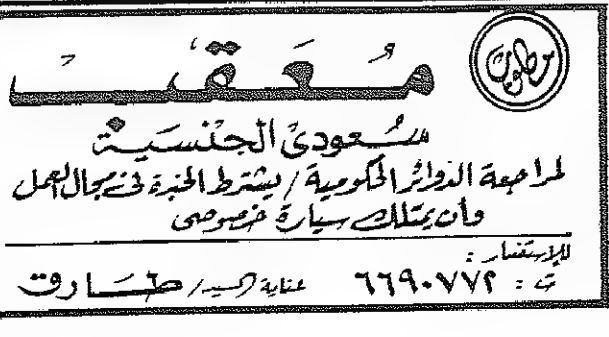 مطلوب
مُعَقِّب
سعودي الجنسية
لمراجعة الدوائر الحكومية / يشترط الخبرة في مجال العمل
وأن يمتلك سيارة خصوصي
للإستفسار :
ت : ٦٦٩٠٧٧٢ عناية السيد / طارق